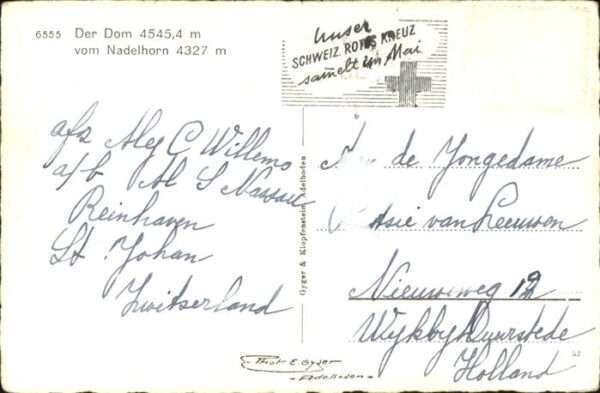 6555 Der Dom 4545,4 m
vom Nadelhorn 4327 m
Unser
SCHWEIZ. ROTES KREUZ
sammelt im Mai
afz Aleg C Willems
a/b Al S Nassau
Reinhaven
St. Johan
Zwitserland
Gyger & Klopfenstein, Adelboden
de Jongedame
van Leeuwen
Nieuweweg 12
Wijk by Duurstede
Holland
Phot E. Gyger
- Adelboden -